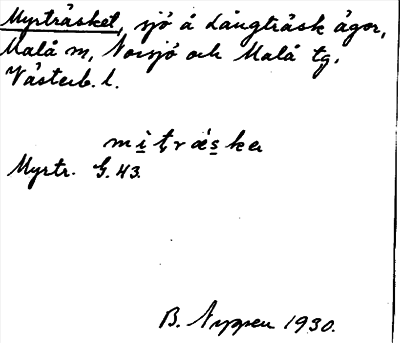 Myrträsket, sjö å Långträsk ägor,
Malå m, Norsjö och Malå tg.
Västerb. l.
mi̱ţræ̀s̱ka
Myrtr. G. 43.
B. Nyppen 1930.